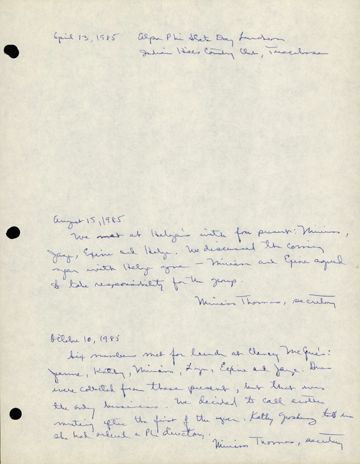 April 13, 1985 Alpha Phi State Day Luncheon
Indian Hills Country Club, Tuscaloosa
August 15, 1985
We met at Helga's with four present: Miriam,
Jaye, and Helga. We discussed the coming
year with Helga gone - Miriam and agreed
to take responsibility for the group.
Miriam Thomas, secretary
October 10, 1985
Six members met for lunch at Clancy McGee's:
Jeanne, Kathy, Miriam, and Jaye. Dues
were collected from those present, but that was
the only business. We decided to call another
meeting after the first of the year. Kathy told us
she had ordered a Phi directory.
Miriam Thomas, secretary